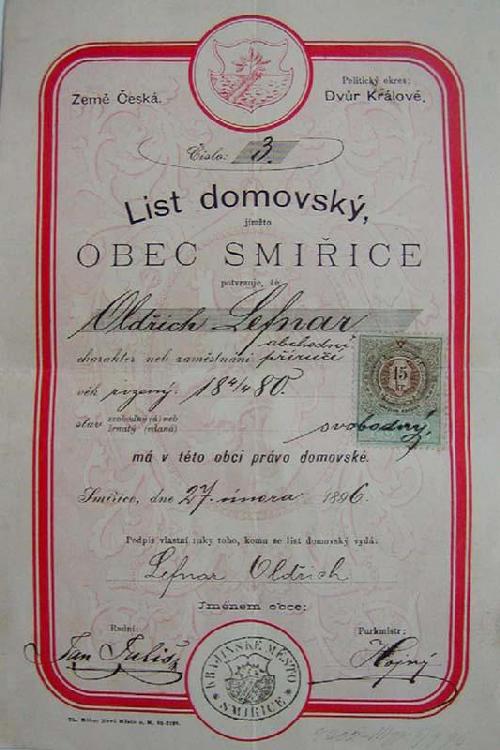 Země Česká.
Politický okres:
Dvůr Králové.
Číslo: 3.
List domovský,
jímžto
OBEC SMIŘICE
potvrzuje, že
Oldřich Lefnar
obchodní
charakter neb zaměstnání: příručí
věk 18 80.
15
kr
stav svobodný (á) neb
ženatý (vdaná)
svobodný,
má v této obci právo domovské.
Smiřice, dne 27. února 1896.
Podpis vlastní ruky toho, komu se list domovský vydá:
Lefnar Oldřich
Jménem obce:
Radní:
Purkmistr:
Jan
Hojný
KRAJINSKÉ MĚSTO
SMIŘICE